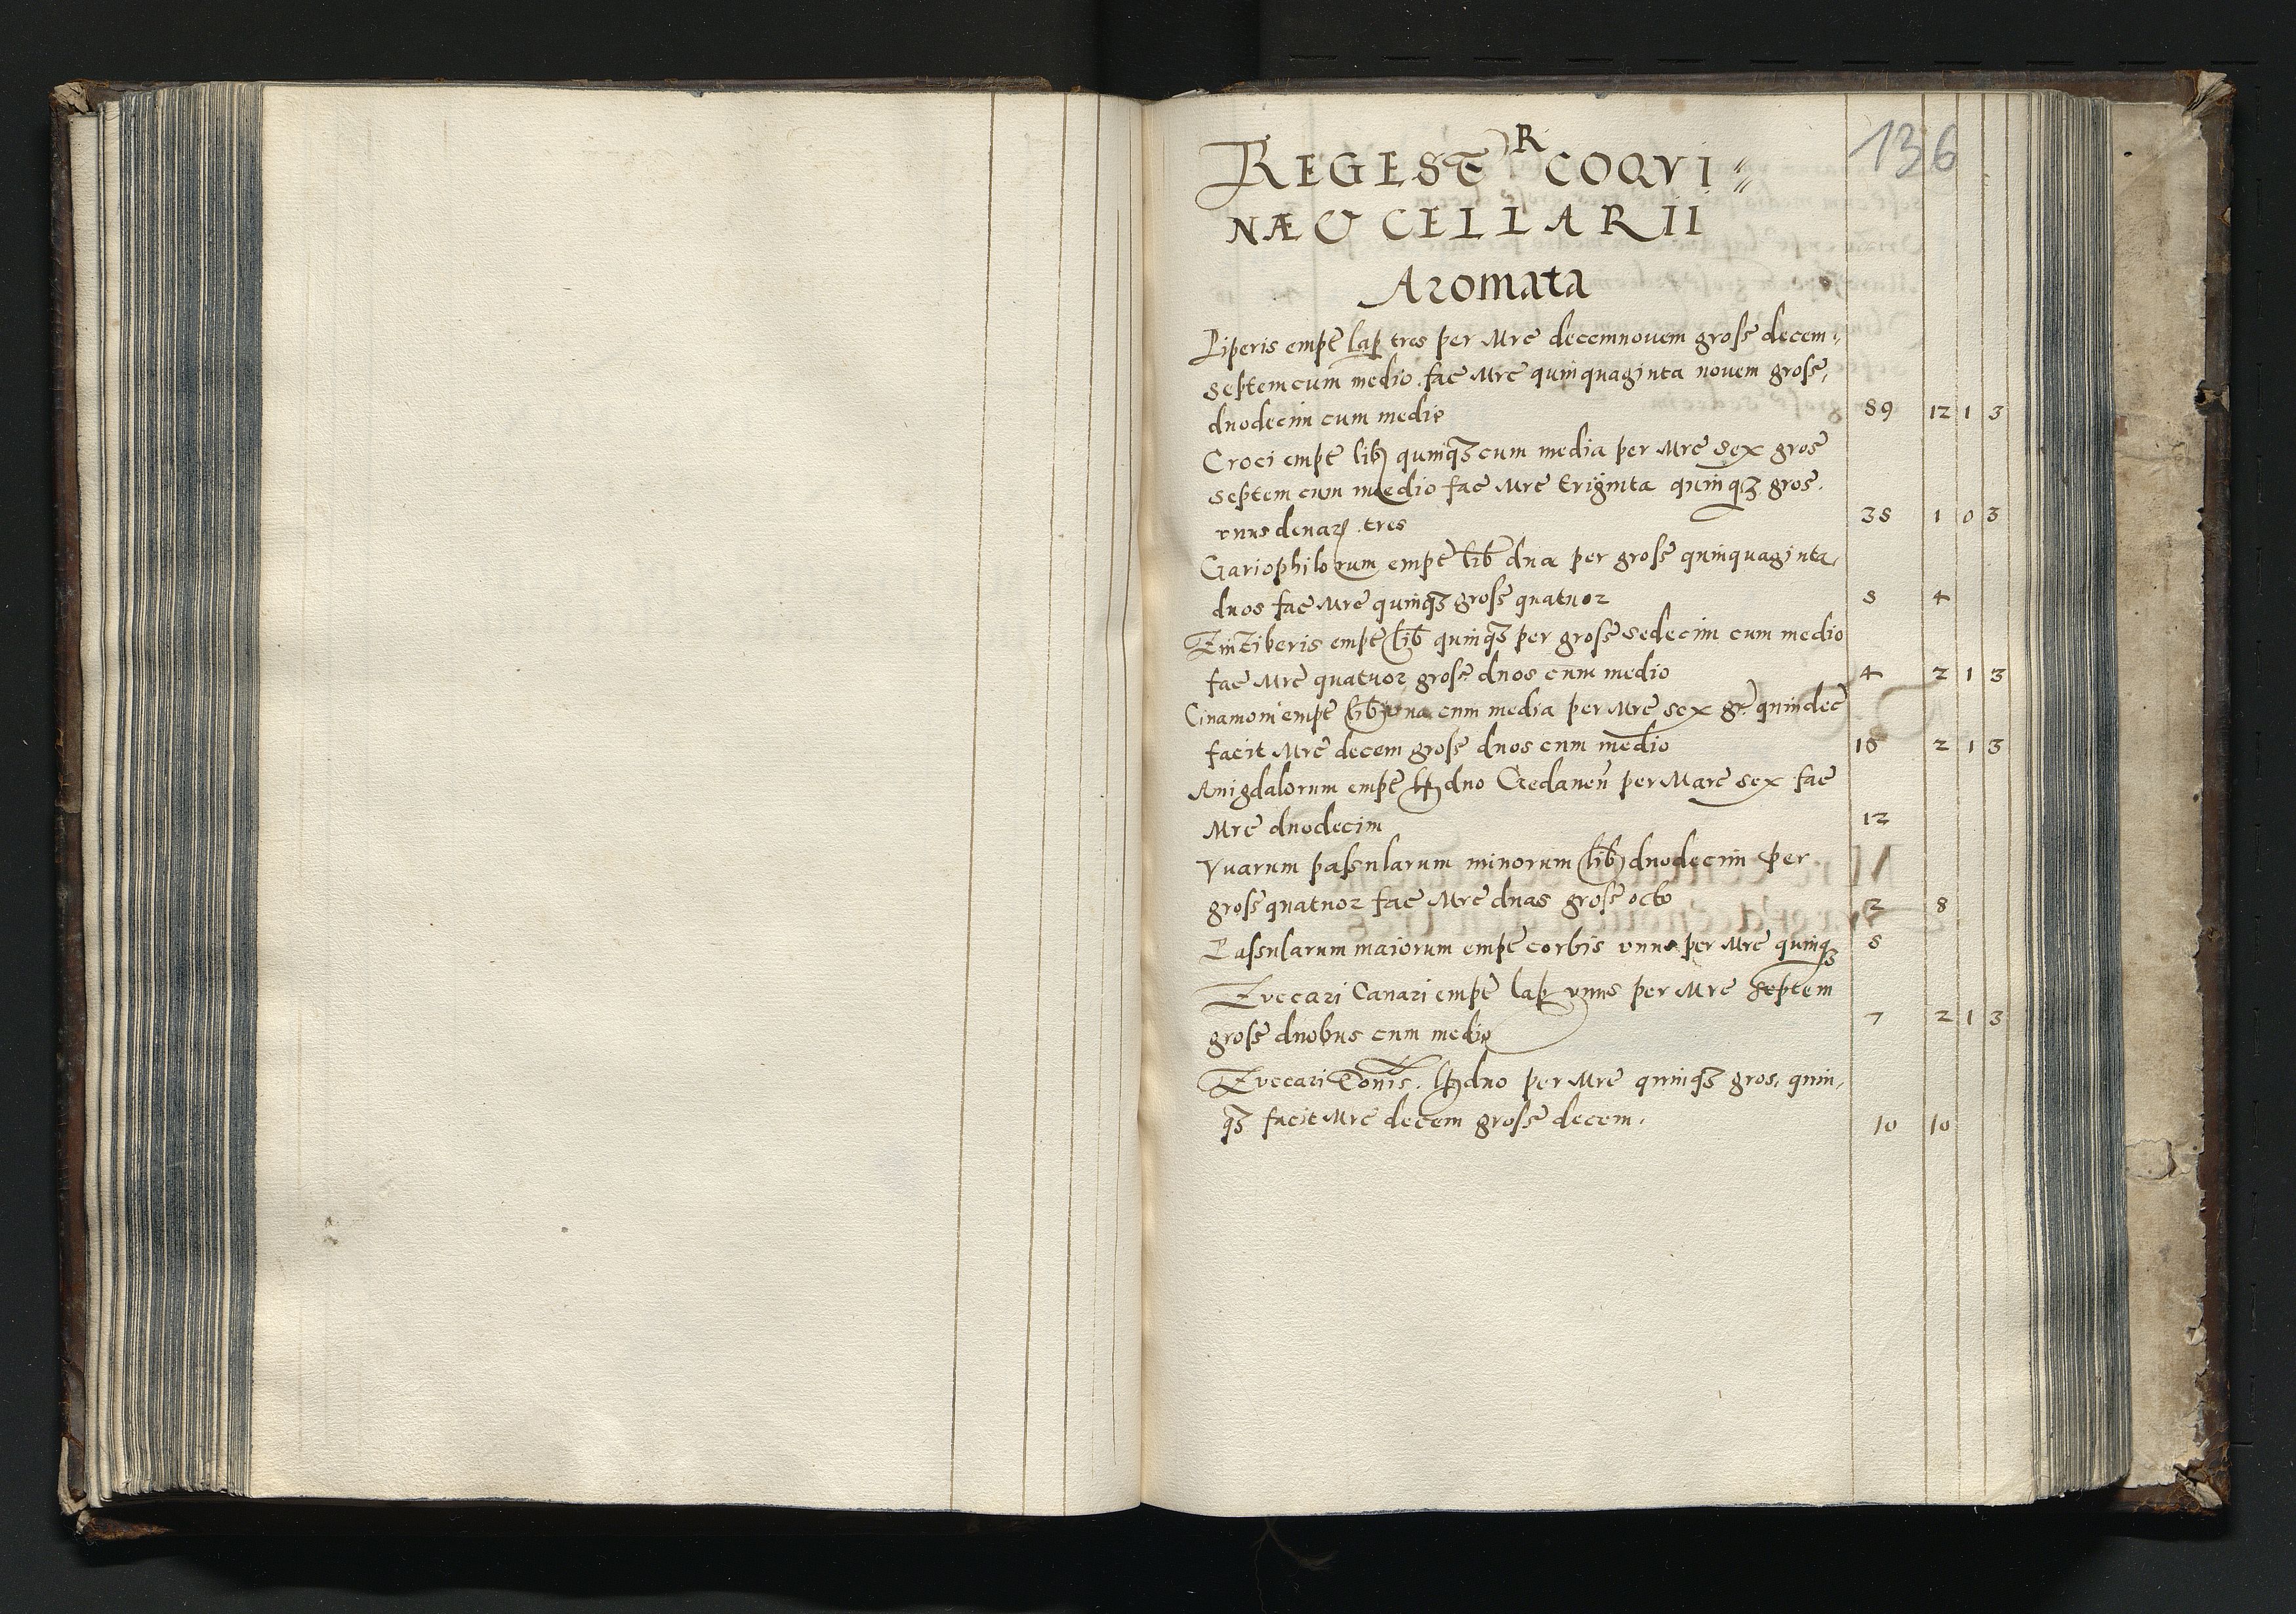 136
REGESTR COQVI⸗
NÆ & CELLARII
Aromata
Piperis empt̄ lap tres per Mrc̄ decemnouem gross̄ decem⸗
septem cum medio fac̄ Mrc̄ quinquaginta nouem gross̄
duodecim cum medio 59 12 1 3
Croci empt̄ lib quinqꝫ cum media per Mrc̄ sex gros̄
septem cum medio fac̄ Mrc̄ triginta quinqꝫ gros.
vnus denar tres 35 1 0 3
Gariophilorum empt̄ lib dua per gross̄ quinquaginta
duos fac̄ Mrc̄ quinqꝫ gross̄ quatuor 5 4
Zinziberis empt̄ lib quinqꝫ per gross̄ sedecim cum medio
fac̄ Mrc̄ quatuor gross̄ duos cum medio 4 2 1 3
Cinamoni empt̄ lib vna cum media per Mrc̄ sex gr̄ quindec̄
facit Mrc̄ decem gross̄ duos cum medio 10 2 1 3
Amigdalorum empt̄ lp duo Gedanen̄ per Marc̄ sex fac̄
Mrc̄ duodecim 12
Vuarum passularum minorum lib duodecim per
gross̄ quatuor fac̄ Mrc̄ duas gross̄ octo 2 8
Passularum maiorum empt̄ corbis vnus per Mrc̄ quinqꝫ 5
Zuccari Canari empt̄ lap vnus per Mrc̄ septem
gross̄ duobus cum medio 7 2 1 3
Zuccari Tonis̄. lp duo per Mrc̄ quinqꝫ gros. quin⸗
qꝫ facit Mrc̄ decem gross̄ decem. 10 10